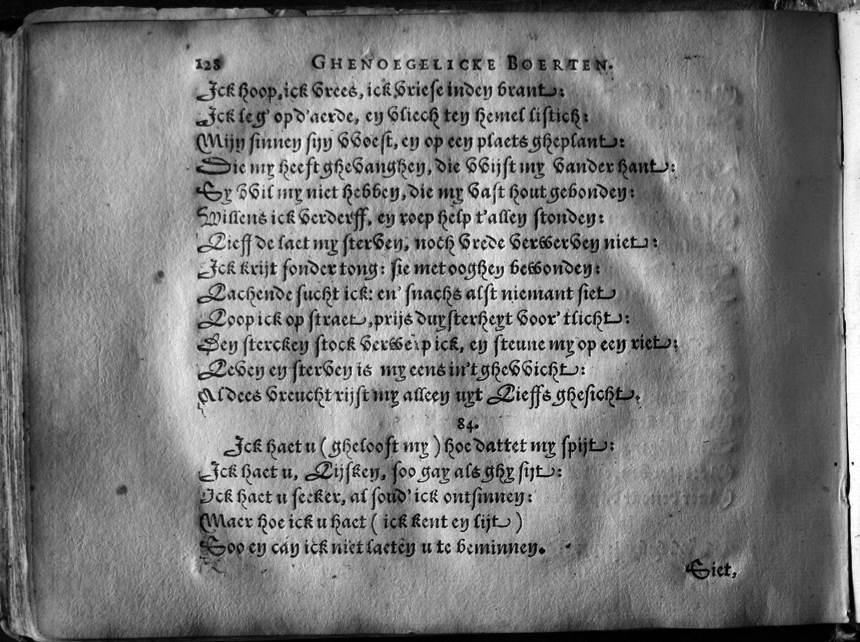 128 GHENOEGELICKE BOERTEN.
Ick hoop, ick vrees, ick vriese inden brant:
Ick leg' op d'aerde, en vliech ten hemel listich:
Mijn sinnen sijn vvoest, en op een plaets gheplant:
Die my heeft ghevanghen, die vvijst my vander hant:
Sy vvil my niet hebben, die my vast hout gebonden:
Willens ick verderff, en roep help t'allen stonden:
Lieff de laet my sterven, noch vrede verwerven niet:
Ick krijt sonder tong: sie met ooghen bewonden:
Lachende sucht ick: en' snachs alst niemant siet
Loop ick op straet, prijs duysterheyt voor' tlicht:
Een stercken stock verwerp ick, en steune my op een riet:
Leven en sterven is my eens in't ghevvicht:
Al dees vreucht rijst my alleen uyt Lieffs ghesicht.
84.
Ick haet u (ghelooft my) hoe dattet my spijt:
Ick haet u, Lijsken, soo gay als ghy sijt:
Ick haet u seeker, al soud' ick ontsinnen:
Maer hoe ick u haet (ick kent en lijt)
Soo en can ick niet laeten u te beminnen.
Siet,